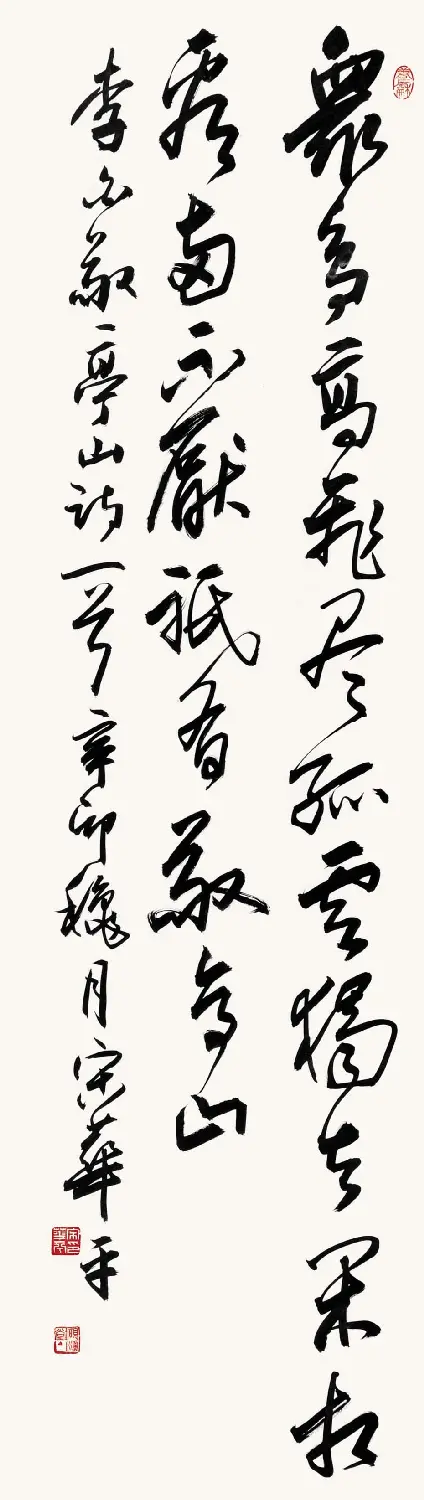 衆鳥高飛尽孤雲獨去閑相
看兩不厭祇有敬亭山
李白敬亭山詩一首辛卯穐月宋華平